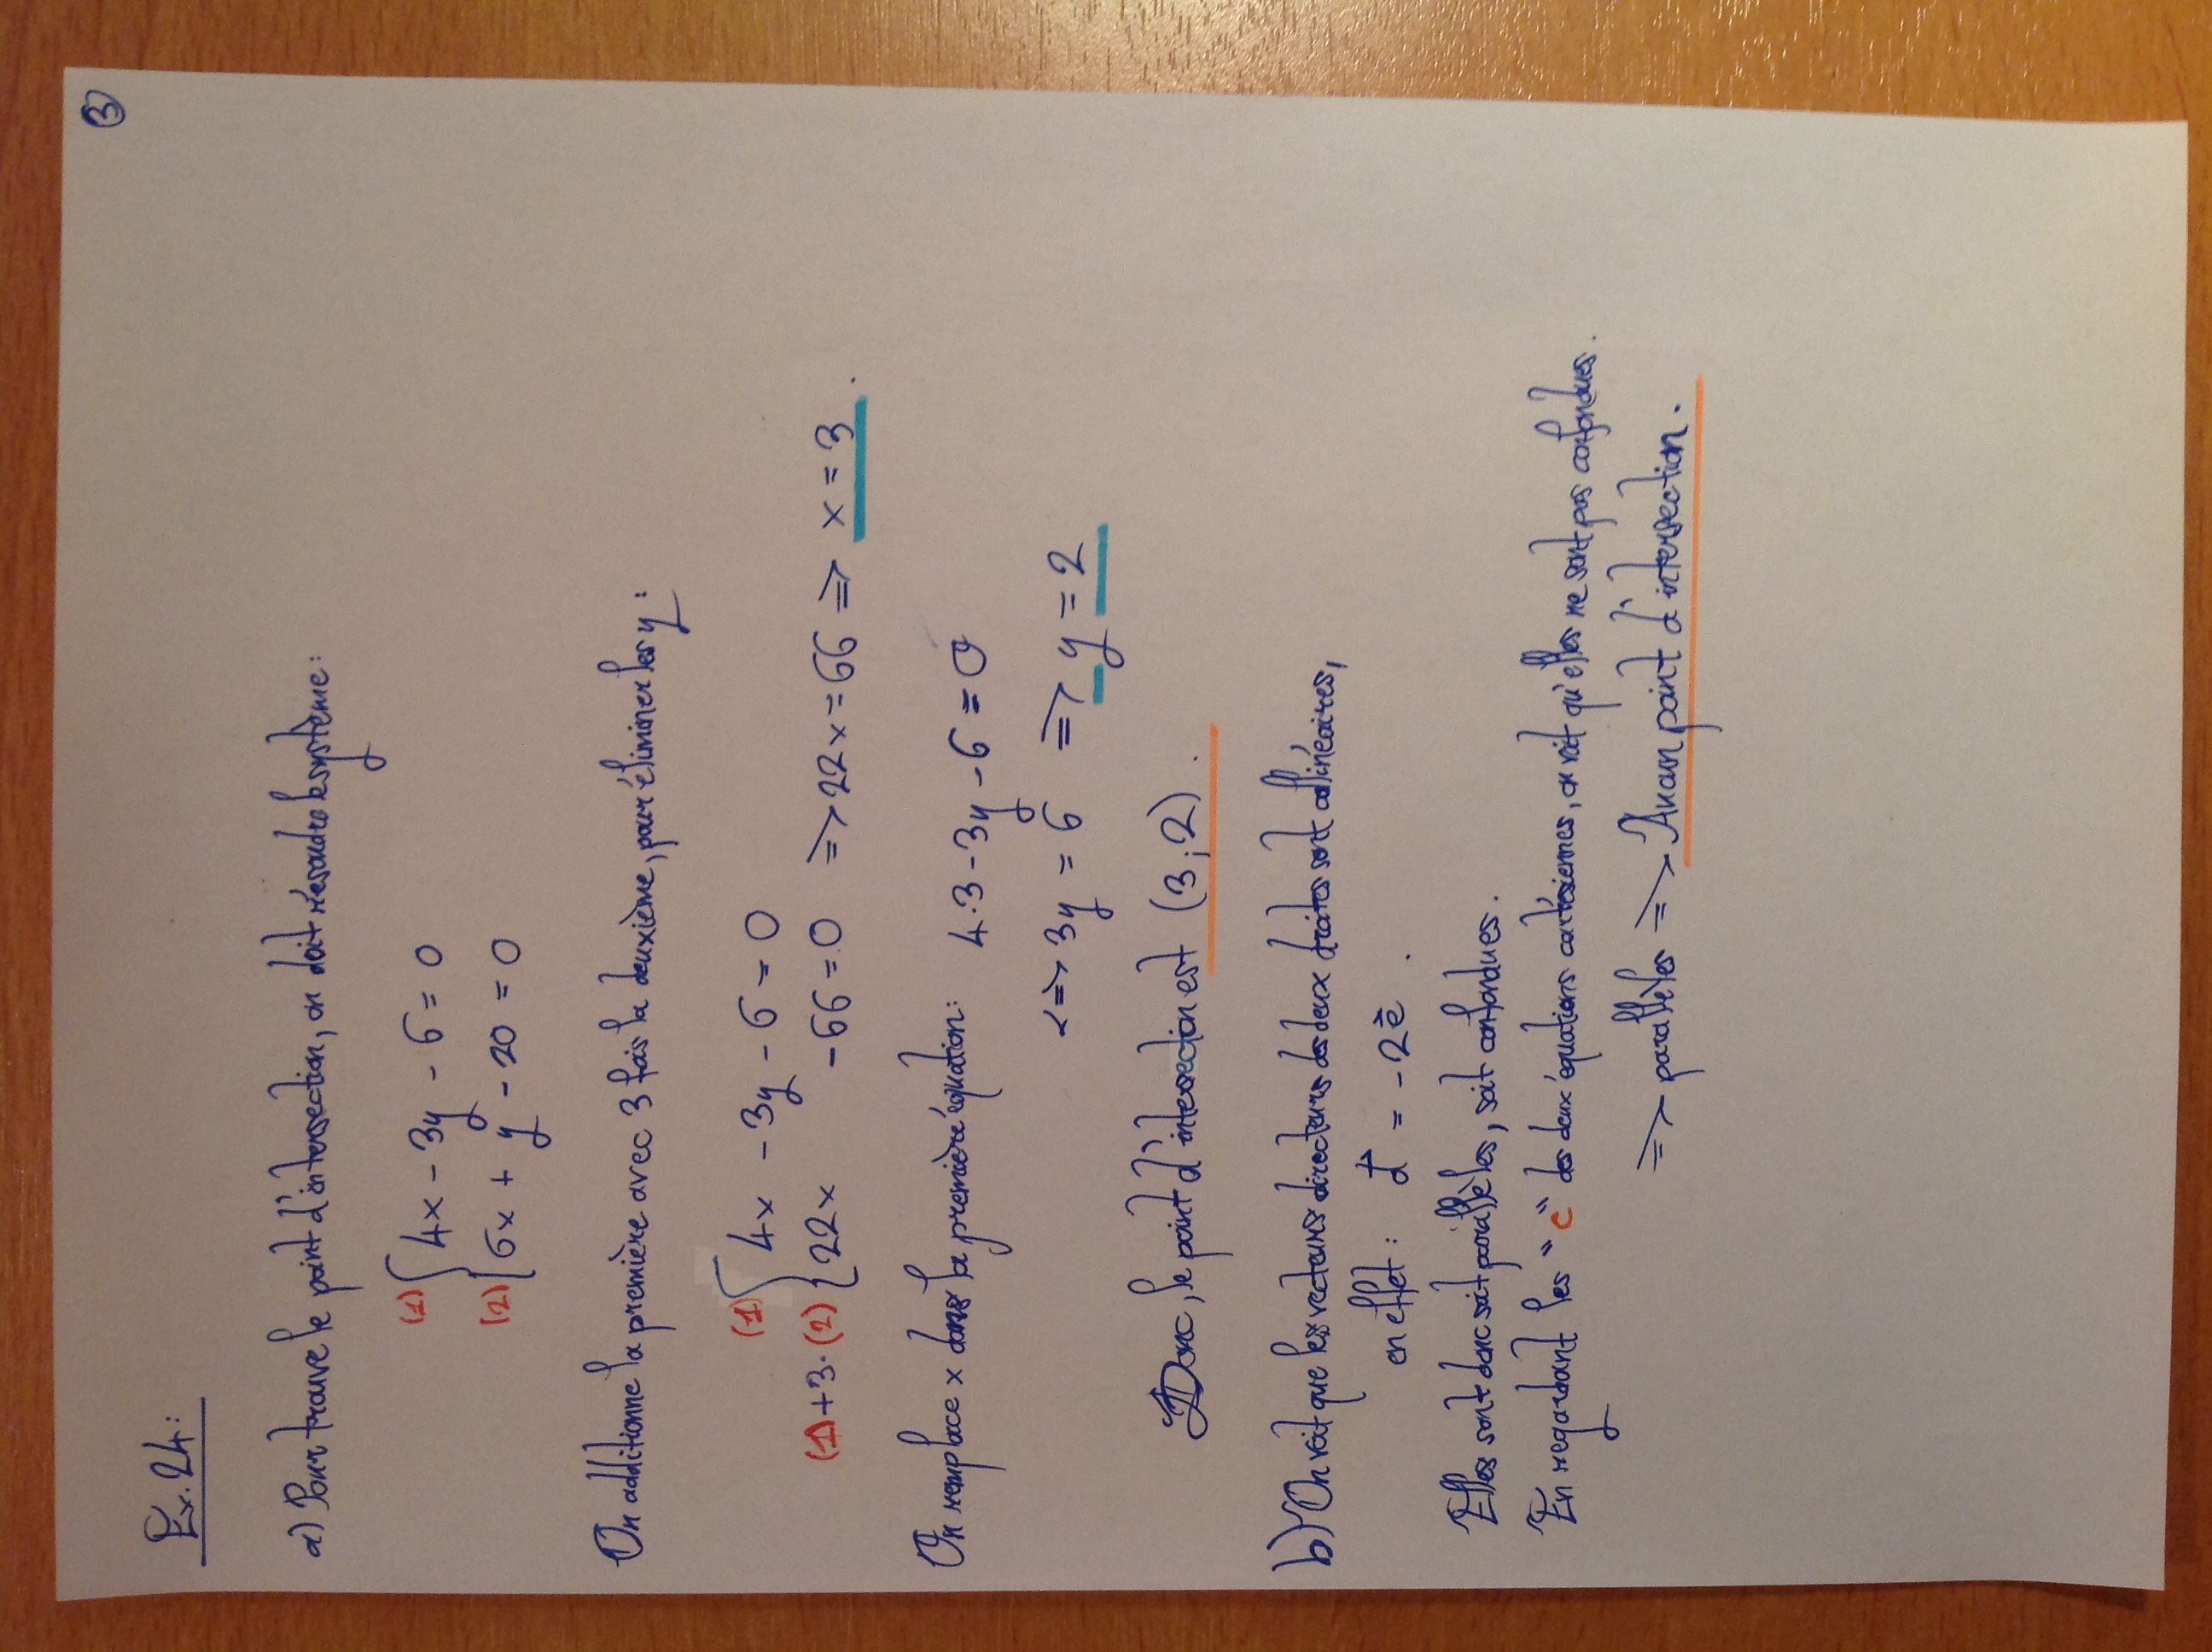 3
Ex. 24:
a) Pour trouve le point d'intersection, on doit résoudre le système:
(1) { 4x - 3y - 6 = 0
(2) { 6x + y - 20 = 0
On additionne la première avec 3 fois la deuxième, pour éliminer les y :
(1) { 4x - 3y - 6 = 0
(1)+3·(2) { 22x - 66 = 0 => 22x = 66 => x = 3 .
On remplace x dans la première équation: 4·3 - 3y - 6 = 0
<=> 3y = 6 => y = 2
Donc, le point d'intersection est (3;2) .
b) On voit que les vecteurs directeurs des deux droites sont collinéaires,
en effet : d⃗ = -2e⃗ .
Elles sont donc soit parallèles, soit confondues.
En regardant les "c" des deux équations cartésiennes, on voit qu'elles ne sont pas confondues.
=> parallèles => Aucun point d'intersection.